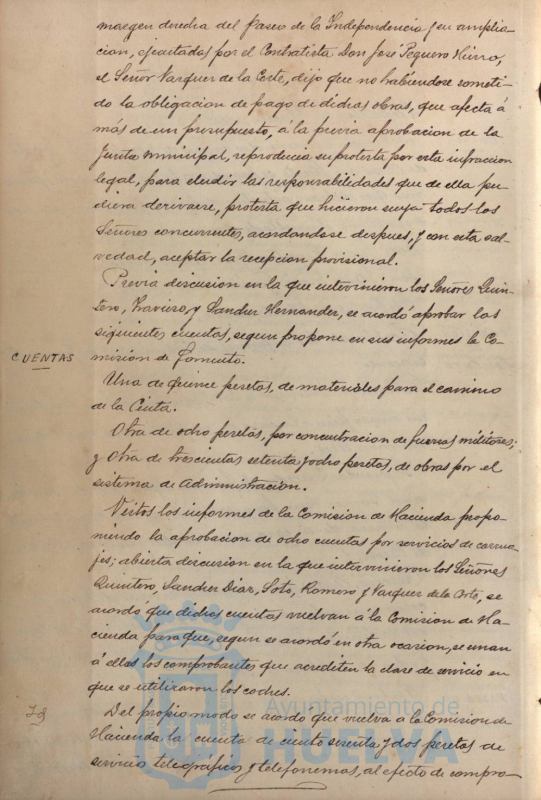 margen derecha del Paseo de la Independencia y su amplia-
cion, ejecutadas por el Contratista Don José Peguero Hierro,
el Señor Vazquez de la Corte, dijo que no habiendose someti-
do la obligacion de pago de dichas obras, que afecta á
más de un presupuesto, á la previa aprobacion de la
Junta municipal, reproducia su protesta por esta infraccion
legal, para eludir las responsabilidades que de ella pu-
diera derivarse, protesta que hicieron suya todos los
Señores concurrentes, acordandose despues, y con esta sal-
vedad, aceptar la recepcion provisional.
Previa discusion en la que intervinieron los Señores Quin-
tero, Traviero, y Sanchez Hernandez, se acordó aprobar las
siguientes cuentas, segun propone en sus informes la Co-
CUENTAS
mision de Fomento.
Una de quince pesetas, de materiales para el camino
de la Cinta.
Otra de ocho pesetas, por concentracion de fuerzas militares;
y otra de trescientas setenta y ocho pesetas, de obras por el
sistema de administracion.
Vistos los informes de la Comision de Hacienda propo-
niendo la aprobacion de ocho cuentas por servicios de carrua-
jes; abierta discusion en la que intervinieron los Señores
Quintero, Sanchez Diaz, Soto, Romero y Vazquez de la Corte, se
acordó que dichas cuentas vuelvan á la Comision de Ha-
cienda para que, segun se acordó en otra ocasion, se unan
á ellas los comprobantes que acrediten la clase de servicio en
que se utilizaron los coches.
Del propio modo se acordó que vuelva a la Comision de
Hacienda, la cuenta de ciento sesenta y dos pesetas de
servicio telegráfico y telefonemas, al efecto de compro-
Ayuntamiento de
HUELVA